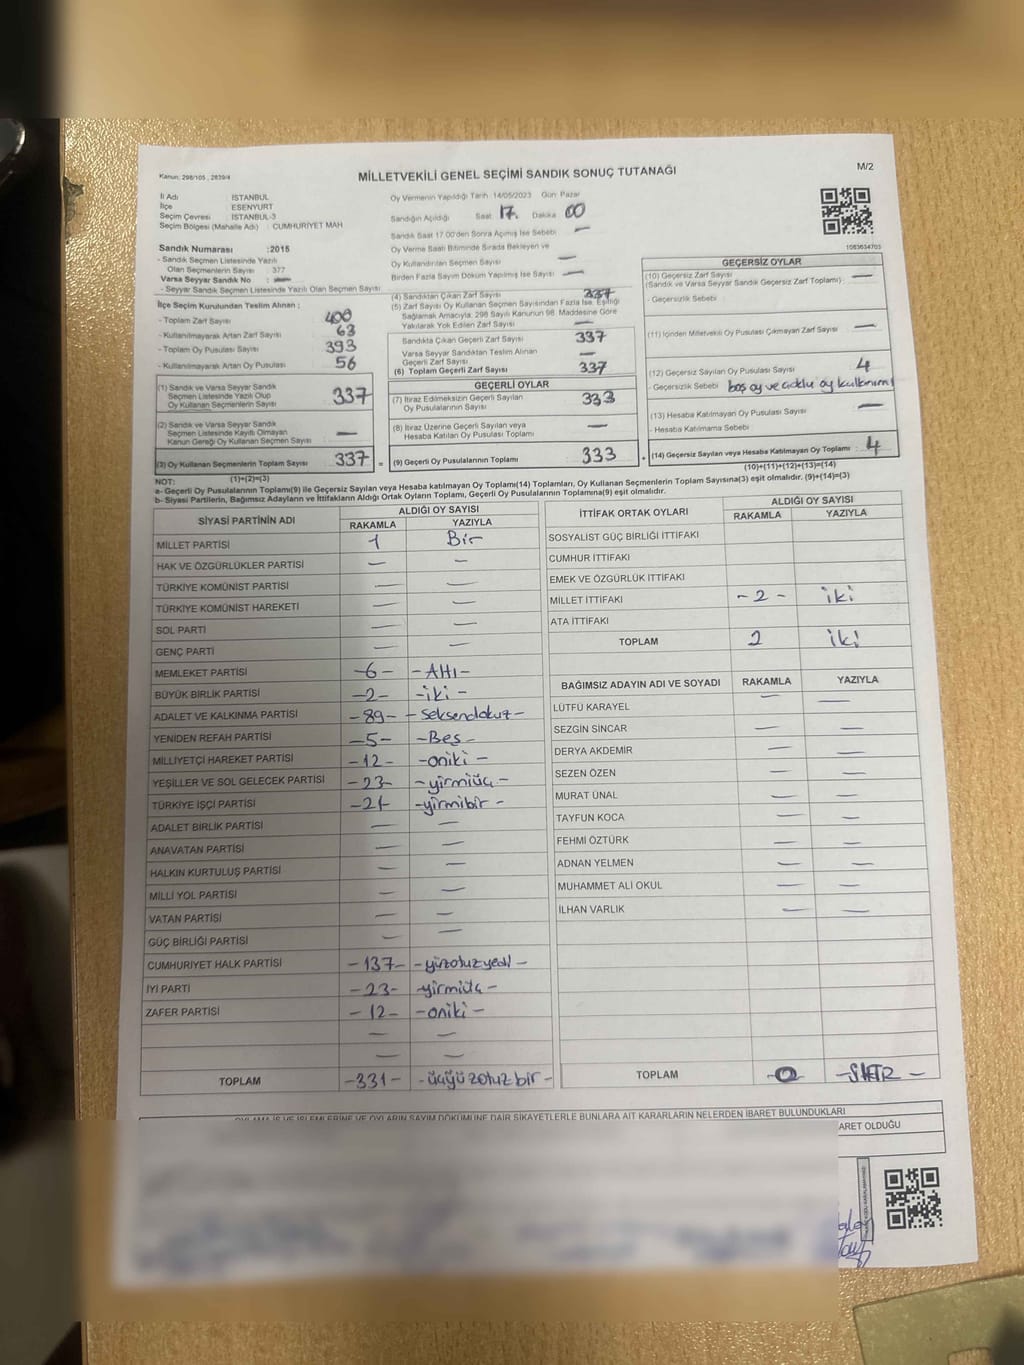 Kanun: 298/105 , 2839/4
MİLLETVEKİLİ GENEL SEÇİMİ SANDIK SONUÇ TUTANAĞI
M/2
İl Adı : İSTANBUL
İlçe : ESENYURT
Seçim Çevresi : İSTANBUL-3
Seçim Bölgesi (Mahalle Adı) : CUMHURİYET MAH
Sandık Numarası :2015
- Sandık Seçmen Listesinde Yazılı
Olan Seçmenlerin Sayısı : 377
Varsa Seyyar Sandık No : —
- Seyyar Sandık Seçmen Listesinde Yazılı Olan Seçmen Sayısı :
Oy Vermenin Yapıldığı Tarih: 14/05/2023 Gün: Pazar
Sandığın Açıldığı Saat 17. Dakika 00
Sandık Saat 17.00'den Sonra Açılmış İse Sebebi —
Oy Verme Saati Bitiminde Sırada Bekleyen ve
Oy Kullandırılan Seçmen Sayısı —
Birden Fazla Sayım Döküm Yapılmış İse Sayısı —
1083634703
İlçe Seçim Kurulundan Teslim Alınan :
- Toplam Zarf Sayısı 400
- Kullanılmayarak Artan Zarf Sayısı 63
- Toplam Oy Pusulası Sayısı 393
- Kullanılmayarak Artan Oy Pusulası 56
(1) Sandık ve Varsa Seyyar Sandık
Seçmen Listesinde Yazılı Olup
Oy Kullanan Seçmenlerin Sayısı 337
(2) Sandık ve Varsa Seyyar Sandık
Seçmen Listesinde Kayıtlı Olmayan
Kanun Gereği Oy Kullanan Seçmen Sayısı —
(3) Oy Kullanan Seçmenlerin Toplam Sayısı 337 =
(1)+(2)=(3)
(4) Sandıktan Çıkan Zarf Sayısı 337
(5) Zarf Sayısı Oy Kullanan Seçmen Sayısından Fazla İse, Eşitliği
Sağlamak Amacıyla, 298 Sayılı Kanunun 98. Maddesine Göre
Yakılarak Yok Edilen Zarf Sayısı —
Sandıkta Çıkan Geçerli Zarf Sayısı 337
Varsa Seyyar Sandıktan Teslim Alınan
Geçerli Zarf Sayısı —
(6) Toplam Geçerli Zarf Sayısı 337
GEÇERLİ OYLAR
(7) İtiraz Edilmeksizin Geçerli Sayılan
Oy Pusulalarının Sayısı 333
(8) İtiraz Üzerine Geçerli Sayılan veya
Hesaba Katılan Oy Pusulası Toplamı —
(9) Geçerli Oy Pusulalarının Toplamı 333 +
GEÇERSİZ OYLAR
(10) Geçersiz Zarf Sayısı
(Sandık ve Varsa Seyyar Sandık Geçersiz Zarf Toplamı) : —
- Geçersizlik Sebebi :
(11) İçinden Milletvekili Oy Pusulası Çıkmayan Zarf Sayısı —
(12) Geçersiz Sayılan Oy Pusulası Sayısı 4
- Geçersizlik Sebebi boş oy ve
(13) Hesaba Katılmayan Oy Pusulası Sayısı —
- Hesaba Katılmama Sebebi
(14) Geçersiz Sayılan veya Hesaba Katılmayan Oy Toplamı : 4
(10)+(11)+(12)+(13)=(14)
NOT:
a- Geçerli Oy Pusulalarının Toplamı(9) ile Geçersiz Sayılan veya Hesaba katılmayan Oy Toplamı(14) Toplamları, Oy Kullanan Seçmenlerin Toplam Sayısına(3) eşit olmalıdır. (9)+(14)=(3)
b- Siyasi Partilerin, Bağımsız Adayların ve İttifakların Aldığı Ortak Oyların Toplamı, Geçerli Oy Pusulalarının Toplamına(9) eşit olmalıdır.
SİYASİ PARTİNİN ADI
ALDIĞI OY SAYISI
RAKAMLA YAZIYLA
MİLLET PARTİSİ 1 Bir
HAK VE ÖZGÜRLÜKLER PARTİSİ — —
TÜRKİYE KOMÜNİST PARTİSİ — —
TÜRKİYE KOMÜNİST HAREKETİ — —
SOL PARTİ — —
GENÇ PARTİ — —
MEMLEKET PARTİSİ -6- -Altı-
BÜYÜK BİRLİK PARTİSİ -2- -iki-
ADALET VE KALKINMA PARTİSİ -89- -seksendokuz-
YENİDEN REFAH PARTİSİ -5- -Beş-
MİLLİYETÇİ HAREKET PARTİSİ -12- -oniki-
YEŞİLLER VE SOL GELECEK PARTİSİ -23- -yirmiüç-
TÜRKİYE İŞÇİ PARTİSİ -21- -yirmibir-
ADALET BİRLİK PARTİSİ — —
ANAVATAN PARTİSİ — —
HALKIN KURTULUŞ PARTİSİ — —
MİLLİ YOL PARTİSİ — —
VATAN PARTİSİ — —
GÜÇ BİRLİĞİ PARTİSİ — —
CUMHURİYET HALK PARTİSİ -137- -yüzotuzyedi-
İYİ PARTİ -23- -yirmiüç-
ZAFER PARTİSİ -12- -oniki-
— —
— —
TOPLAM -331- -üçyüzotuzbir-
İTTİFAK ORTAK OYLARI
ALDIĞI OY SAYISI
RAKAMLA YAZIYLA
SOSYALİST GÜÇ BİRLİĞİ İTTİFAKI
CUMHUR İTTİFAKI
EMEK VE ÖZGÜRLÜK İTTİFAKI
MİLLET İTTİFAKI -2- iki
ATA İTTİFAKI
TOPLAM 2 iki
BAĞIMSIZ ADAYIN ADI VE SOYADI RAKAMLA YAZIYLA
LÜTFÜ KARAYEL — —
SEZGİN SİNCAR — —
DERYA AKDEMİR — —
SEZEN ÖZEN — —
MURAT ÜNAL — —
TAYFUN KOCA — —
FEHMİ ÖZTÜRK — —
ADNAN YELMEN — —
MUHAMMET ALİ OKUL — —
İLHAN VARLIK — —
TOPLAM -0- -SIFIR-
OYLAMA İŞ VE İŞLEMLERİNE VE OYLARIN SAYIM DÖKÜMÜNE DAİR ŞİKAYETLERLE BUNLARA AİT KARARLARIN NELERDEN İBARET BULUNDUKLARI
BARET OLDUĞU